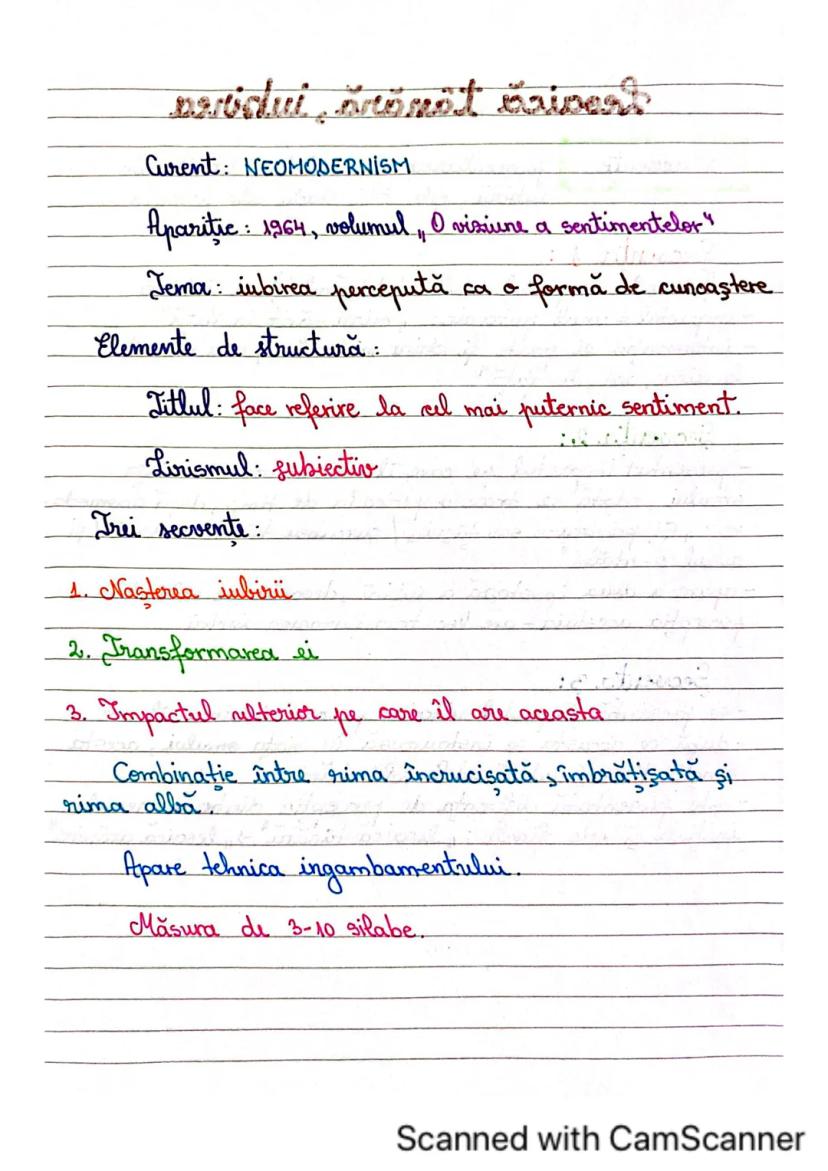 Leoaică tânără, iubirea
Curent: NEOMODERNISM
Apariție: 1964, volumul „O viziune a sentimentelor"
Tema: iubirea percepută ca o formă de cunoaștere
Elemente de structură:
Titlul: face referire la cel mai puternic sentiment.
Lirismul: subiectiv
Trei secvențe:
1. Nașterea iubirii
2. Transformarea ei
3. Impactul ulterior pe care îl are aceasta
Combinație între rima încrucișată, îmbrățișată și
rima albă.
Apare tehnica ingambamentului.
Măsura de 3-10 silabe.
Scanned with CamScanner